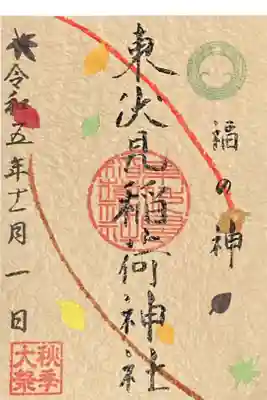 福の神
東伏見稲荷神社
令和五年十一月一日
秋季
大祭